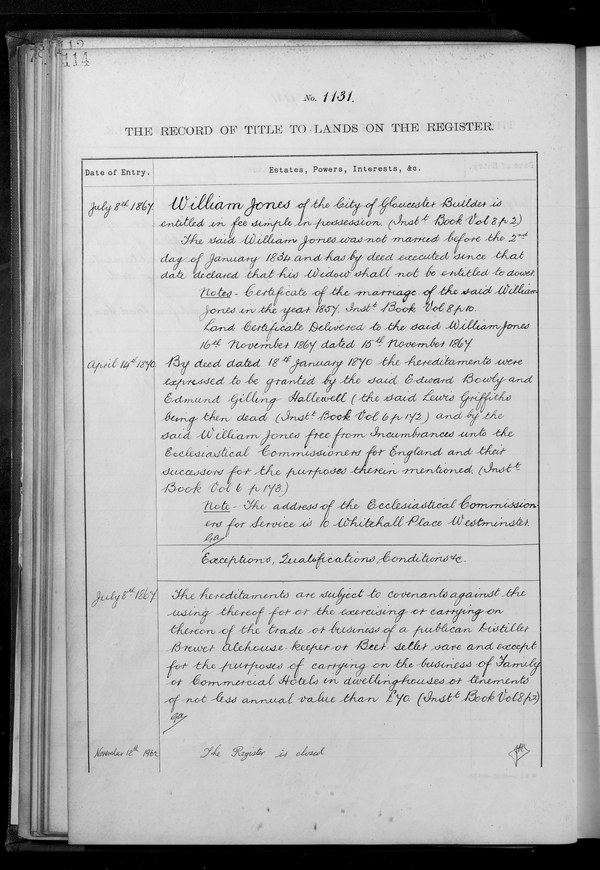 112
114
No. 1131.
THE RECORD OF TITLE TO LANDS ON THE REGISTER.
Date of Entry.
Estates, Powers, Interests, &c.
July 8th 1867
William Jones of the City of Gloucester Builder is
entitled in fee simple in possession. (Instt Book Vol 8 p 2)
The said William Jones was not married before the 2nd
day of January 1834 and has by deed executed since that
date declared that his Widow shall not be entitled to dower.
Notes - Certificate of the marriage of the said William
Jones in the year 1857. Instt Book Vol 8 p 10.
Land Certificate Delivered to the said William Jones
16th November 1867 dated 15th November 1867
April 14th 1870
By deed dated 18th January 1870 the hereditaments were
expressed to be granted by the said Edward Bowly and
Edmund Gilling Hallewell (the said Lewis Griffiths
being then dead (Instt Book Vol 6 p 172) and by the
said William Jones free from Incumbrances unto the
Ecclesiastical Commissioners for England and their
successors for the purposes therein mentioned. (Instt
Book Vol 6 p 178.)
Note - The address of the Ecclesiastical Commission
ers for Service is 10 Whitehall Place Westminster.
Exceptions, Qualifications, Conditions &c.
July 8th 1867
The hereditaments are subject to covenants against the
using thereof for or the exercising or carrying on
thereon of the trade or business of a publican Distiller
Brewer alehouse keeper or Beer seller save and except
for the purposes of carrying on the business of Family
or Commercial Hotels in dwellinghouses or tenements
of not less annual value than £70 (Instt Book Vol 8 p 2)
November 12th 1962
The Register is closed